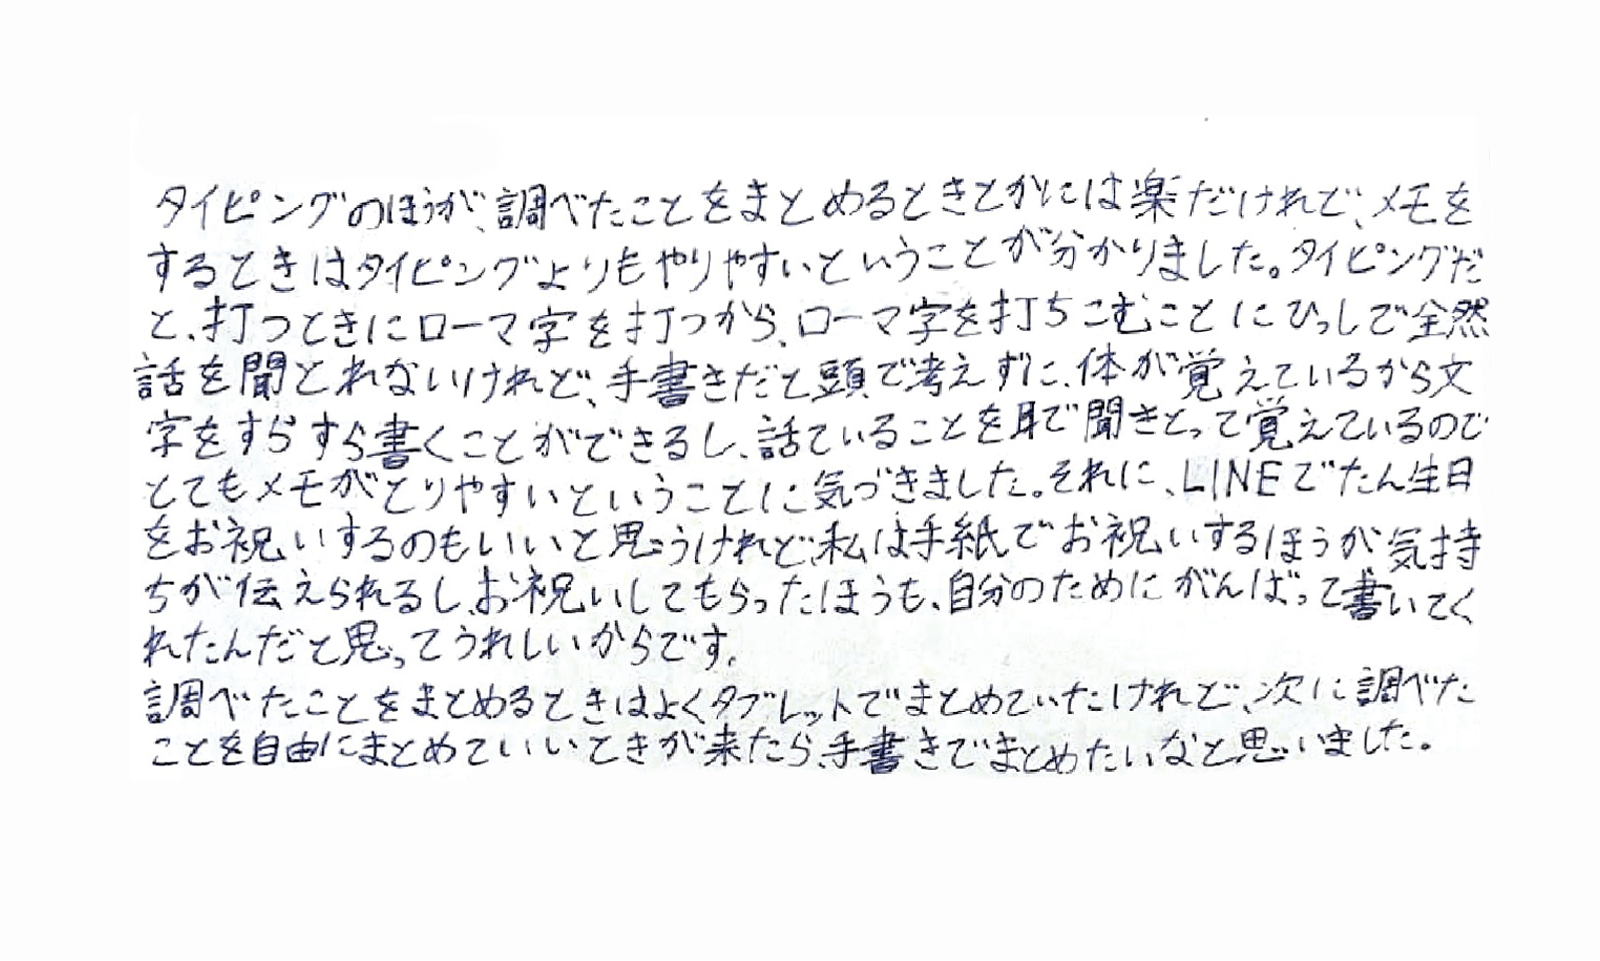 タイピングのほうが、調べたことをまとめるときとかには楽だけれど、メモを
するときはタイピングよりもやりやすいということが分かりました。タイピングだ
と、打つときにローマ字を打つから、ローマ字を打ちこむことにひっしで全然
話を聞とれないけれど、手書きだと頭で考えずに、体が覚えているから文
字をすらすら書くことができるし、話ていることを耳で聞きとって覚えているので
とてもメモがとりやすいということに気づきました。それに、LINEでたん生日
をお祝いするのもいいと思うけれど、私は手紙でお祝いするほうが気持
ちが伝えられるし、お祝いしてもらったほうも、自分のためにがんばって書いてく
れたんだと思ってうれしいからです。
調べたことをまとめるときはよくタブレットでまとめていたけれど、次に調べた
ことを自由にまとめていいときが来たら、手書きでまとめたいなと思いました。